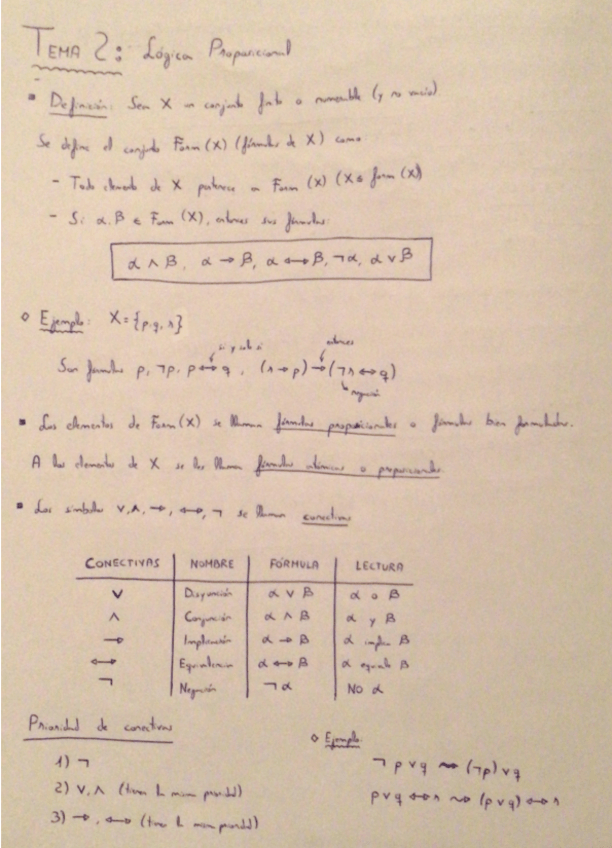 TEMA 2: Lógica Proposicional
▪ Definición: Sea X un conjunto finito o numerable (y no vacío).
Se define el conjunto Form(X) (fórmulas de X) como
- Todo elemento de X pertenece a Form(X) (X ≤ form(X))
- Si α, β ∈ Form(X), entonces son fórmulas:
α ∧ β, α → β, α ↔ β, ¬α, α ∨ β
◇ Ejemplo: X = {p, q, r}
si y solo si entonces
Son fórmulas p, ¬p, p ↔ q, (r → p) → (¬r ↔ q)
negación
▪ Los elementos de Form(X) se llaman fórmulas proposicionales o fórmulas bien formuladas.
A los elementos de X se les llaman fórmulas atómicas o proposicionales
▪ Los símbolos ∨, ∧, →, ↔, ¬ se llaman conectivas
CONECTIVAS NOMBRE FÓRMULA LECTURA
∨ Disyunción α ∨ β α o β
∧ Conjunción α ∧ β α y β
→ Implicación α → β α implica β
↔ Equivalencia α ↔ β α equivale β
¬ Negación ¬α NO α
Prioridad de conectivas
1) ¬
2) ∨, ∧ (tienen la misma prioridad)
3) →, ↔ (tienen la misma prioridad)
◇ Ejemplo:
¬p∨q ⇝ (¬p)∨q
p∨q ↔ r ⇝ (p∨q) ↔ r